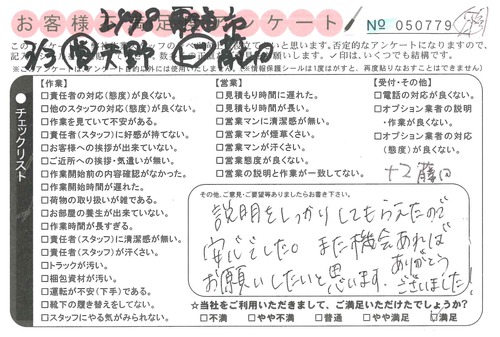 お客様 足 アンケート!
№ 050779
※このアンケートは
【作業】
□責任者の対応(態度)が良くない。
□他のスタッフの対応(態度)が良くない。
□作業を見ていて不安がある。
□責任者(スタッフ)に好感が持てない。
□お客様への挨拶が出来ていない。
□ご近所への挨拶・気遣いが無い。
□作業開始前の内容確認がなかった。
□作業開始時間が遅れた。
□荷物の取り扱いが雑である。
□お部屋の養生が出来ていない。
□作業時間が長すぎる。
□責任者(スタッフ)に清潔感が無い。
□責任者(スタッフ)が汗くさい。
□トラックが汚い。
□梱包資材が汚い。
□運転が不安(下手)である。
□靴下の履き替えをしてない。
□スタッフにやる気がみられない。
【営業】
□見積もり時間に遅れた。
□見積もり時間が長い。
□営業マンに清潔感が無い。
□営業マンが煙草くさい。
□営業マンが汗くさい。
□営業態度が良くない。
□営業の説明と作業が一致してない。
【受付・その他】
□電話の対応が良くない。
□オプション業者の説明
・作業が良くない。
□オプション業者の対応
(態度)が良くない。
チェックリスト
その他、ご意見・ご要望等ありましたらお書き下さい。
説明をしっかりしてもらえたので
安心でした。また機会あれば
お願いしたいと思います。ありがとう
ございました!
☆当社をご利用いただきまして、ご満足いただけたでしょうか?
□不満 □やや不満 □普通 □やや満足 □満足